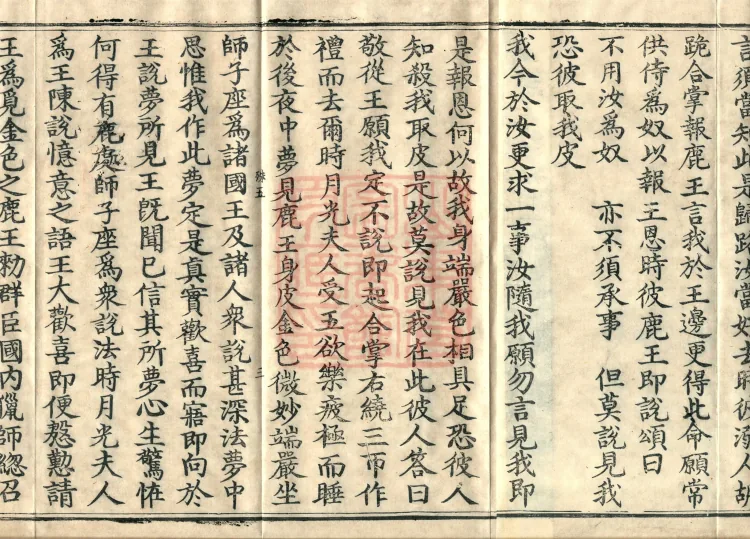 言須當知此是歸路汝當好去時彼溺人胡
跪合掌報鹿王言我於王邊更得此命願常
供侍爲奴以報王恩時彼鹿王即說頌曰
不用汝爲奴　亦不須承事　但莫說見我
恐彼取我皮
我今於汝更求一事汝隨我願勿言見我即
是報恩何以故我身端嚴色相具足恐彼人
知殺我取皮是故莫說見我在此彼人答曰
敬從王願我定不說即起合掌右繞三帀作
禮而去爾時月光夫人受五欲樂疲極而睡
於後夜中夢見鹿王身皮金色微妙端嚴坐
三
師子座爲諸國王及諸人衆說甚深法夢中
思惟我作此夢定是真實歡喜而寤即向於
王說夢所見王旣聞已信其所夢心生驚恠
何得有鹿處師子座爲衆說法時月光夫人
爲王陳說憶意之語王大歡喜即便慇懃請
王爲覓金色之鹿王勑群臣國内獵師緫召